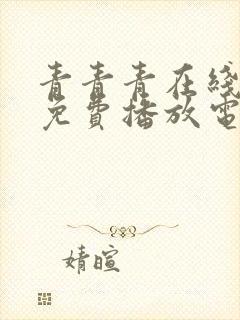 青青青在线
免费播放电
婧暄